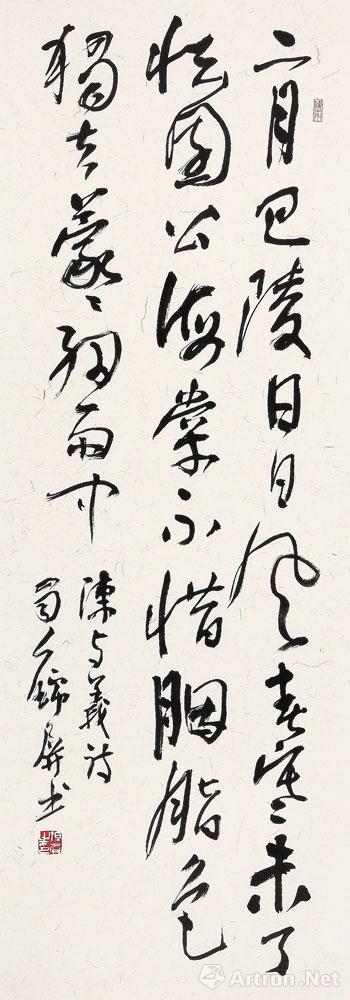 二月巴陵日日风春寒未了
怯園公海棠不惜胭脂色
獨立蒙々細雨中
陳与義詩
蜀人錦屏书
Artron.Net